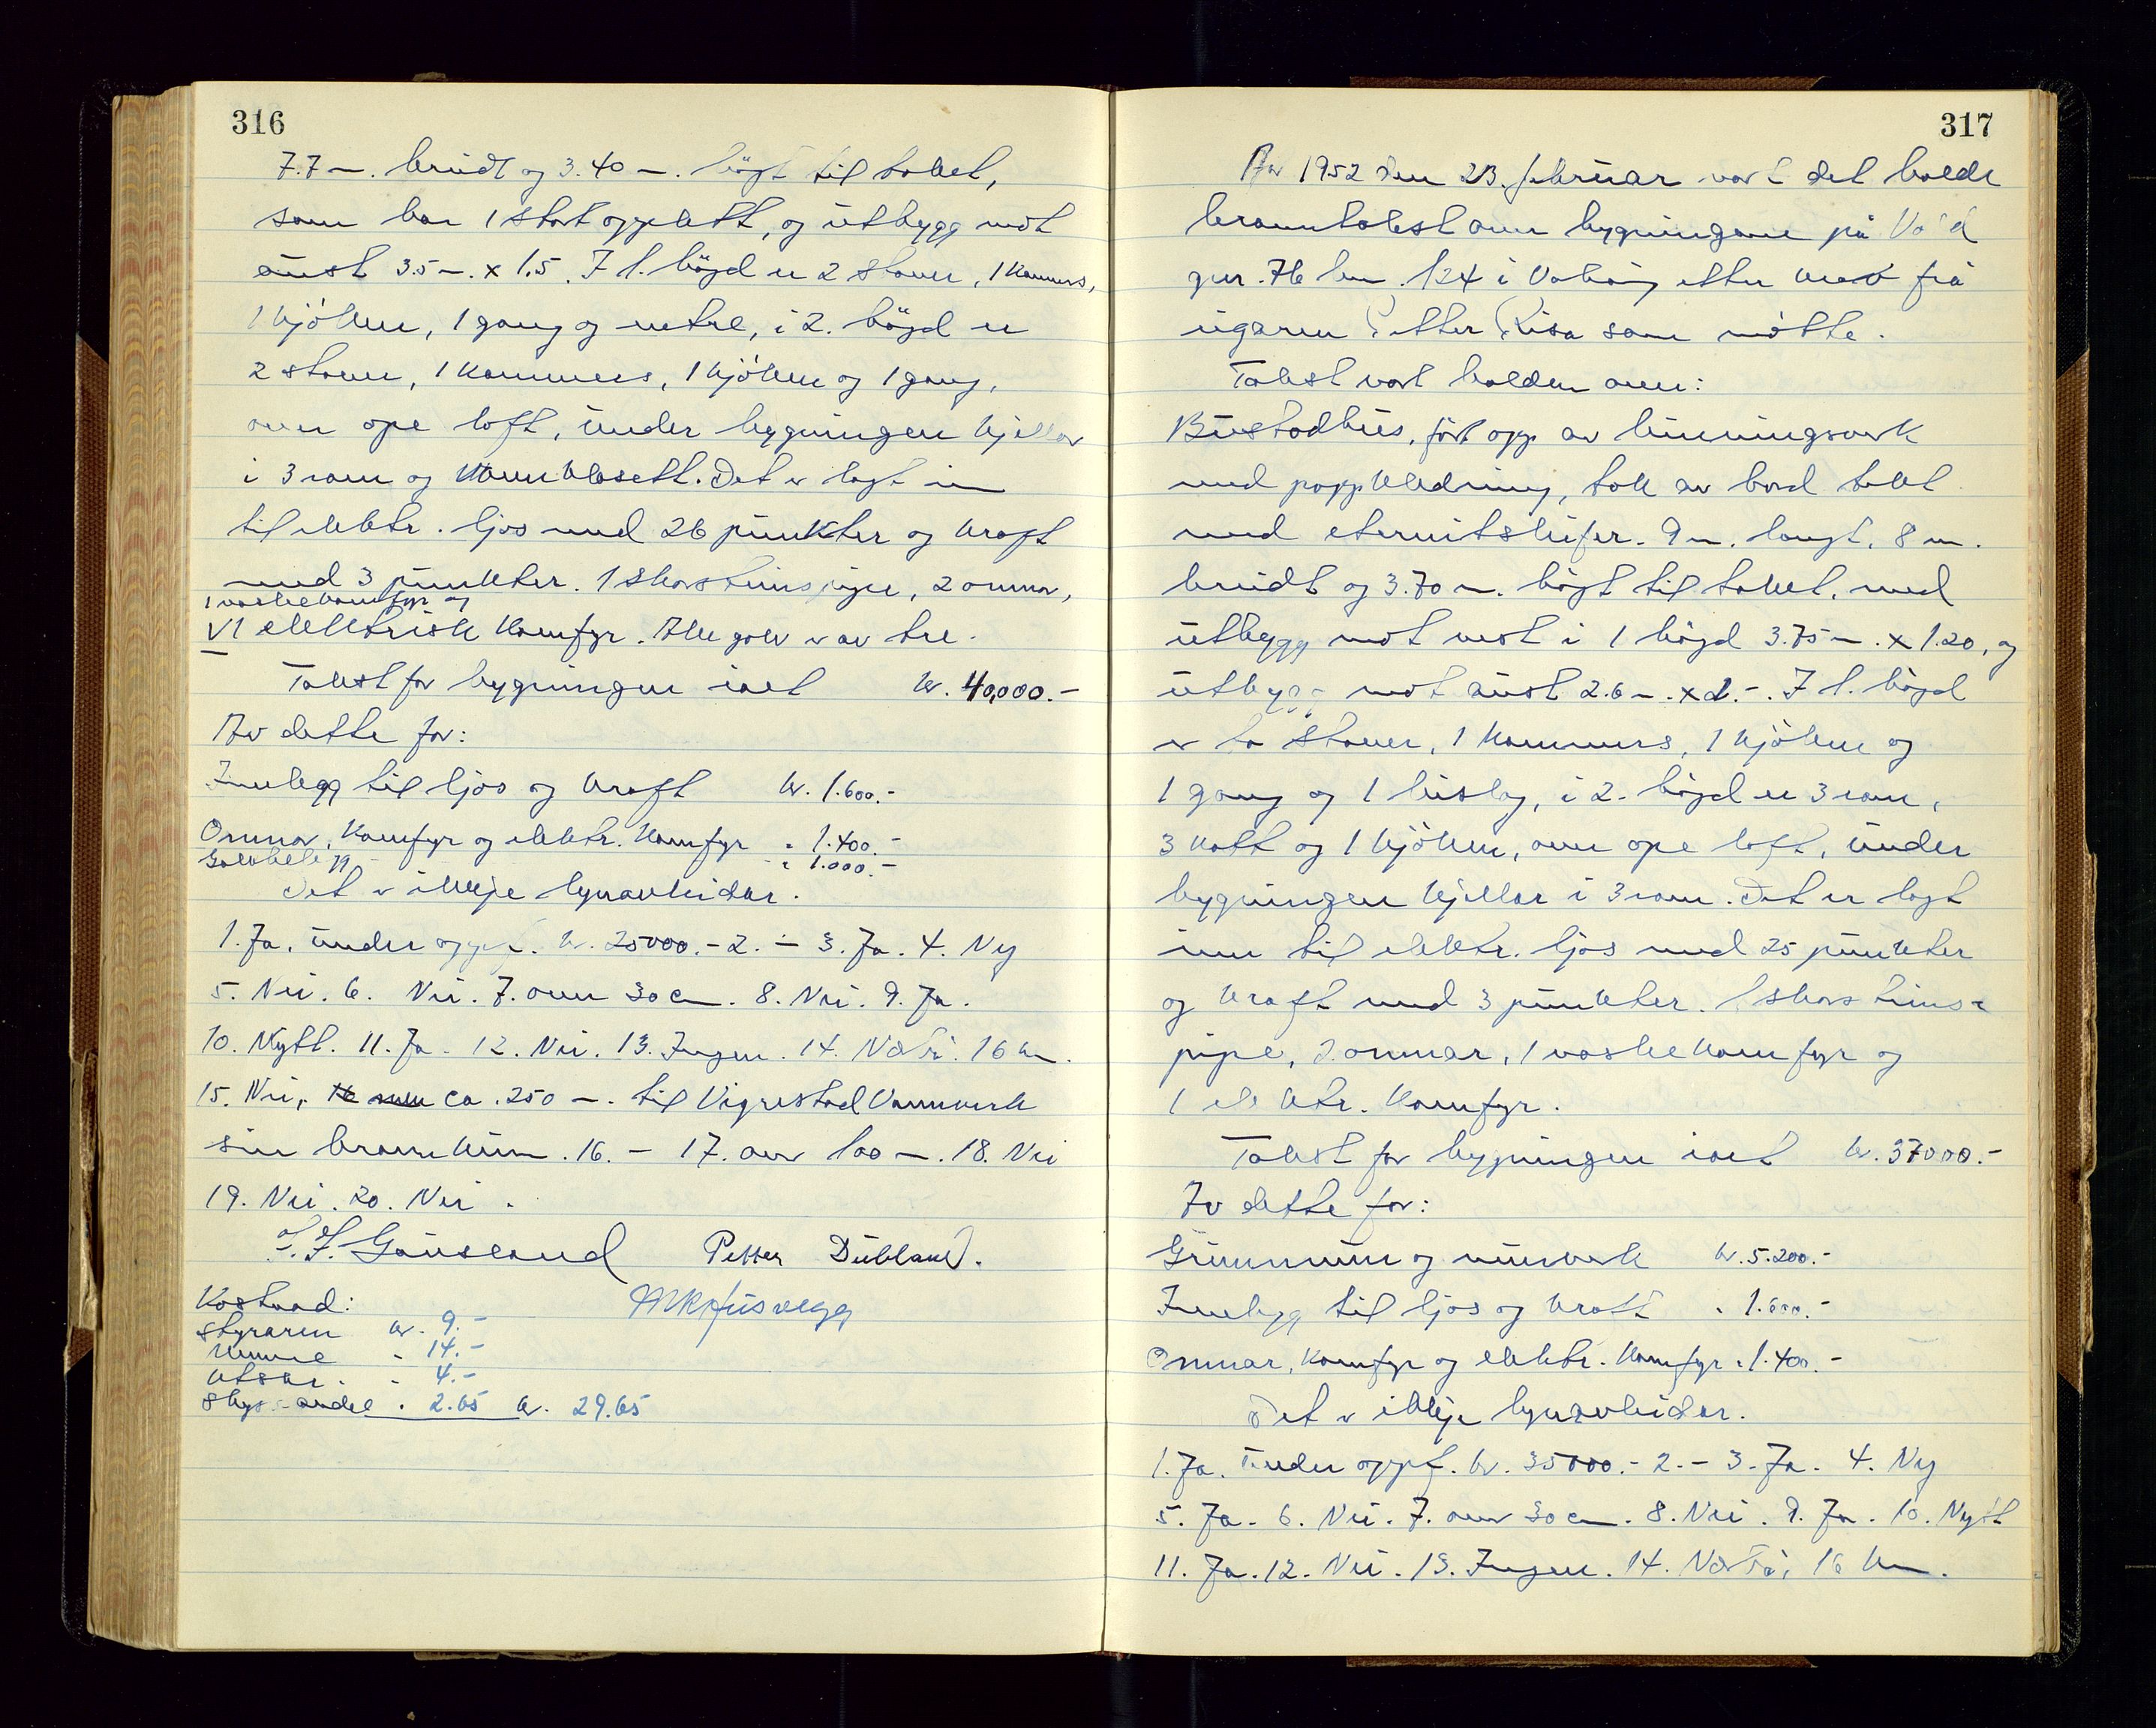 316
7.7 m. breidt og 3.40 m. høgt til taket,
som har 1 stort opplett, og utbygg mot
aust 3.5 m. x 1.5. I 1. høgd er 2 stover, 1 kammers,
1 kjøken, 1 gang og entre, i 2. høgd er
2 stover, 1 kammers, 1 kjøken og 1 gang,
over ope loft, under bygningen kjellar
i 3 rom og vannklosett. Det er lagt inn
til elektr. ljos med 26 punkter og kraft
med 3 punkter. 1 skorsteinspipe, 2 omnar,
1 vaskekomfyr og
V1 elektrisk komfyr. Alle golv er av tre.
Takst for bygningen i alt kr. 40,000.-
Av dette for:
Innlegg til ljos og kraft kr. 1.600.-
Omnar, komfyr og elektr. komfyr " 1.400.-
Golvbelegg " 1.000.-
Det er ikkje lynavleidar.
1. Ja, under oppf. kr. 25000.- 2. - 3. Ja. 4. Ny
5. Nei. 6. Nei. 7. over 30 cm. 8. Nei. 9. Ja.
10. Nytt. 11. Ja. 12. Nei. 13. Ingen. 14. Nærbø. 16 km.
15. Nei, ca. 250 m. til Vigrestad Vannverk
sin brannkum. 16. - 17. over 100 m. 18. Nei
19. Nei. 20. Nei.
Gausland Petter Dubland.
Kostnad:
Styraren kr. 9.-
Menne " 14.-
Utskr. " 4.-
Skyssandel " 2.65 kr. 29.65
317
År 1952 den 23. februar vart det halde
branntakst over bygningane på
gnr. 76 bnr. 124 i Varhaug etter krav frå
eigaren Petter Risa som møtte.
Takst vart halden over:
Bustadhus, ført opp av binningsverk
med pappkledning, tak av bord tekt
med eternitskifer. 9 m. langt, 8 m.
breidt og 3.70 m. høgt til taket, med
utbygg mot vest i 1 høgd 3.75 m. x 1.20, og
utbygg mot aust 2.6 m. x 2.-. I 1. høgd
er to stover, 1 kammers, 1 kjøken og
1 gang og 1 bislag, i 2. høgd er 3 rom,
3 kott og 1 kjøken, over ope loft, under
bygningen kjellar i 3 rom. Det er lagt
inn til elektr. ljos med 25 punkter
og kraft med 3 punkter. 1 skorsteins-
pipe, 2 omnar, 1 vaskekomfyr og
1 elektr. komfyr.
Takst for bygningen i alt kr. 37000.-
Av dette for:
Grunnmur og murverk kr. 5.200.-
Innlegg til ljos og kraft " 1.600.-
Omnar, komfyr og elektr. komfyr " 1.400.-
Det er ikkje lynavleidar.
1. Ja. Under oppf. kr. 35000.- 2. - 3. Ja. 4. Ny
5. Ja. 6. Nei. 7. over 30 cm. 8. Nei. 9. Ja. 10. Nytt
11. Ja. 12. Nei. 13. Ingen. 14. Nærbø, 16 km.